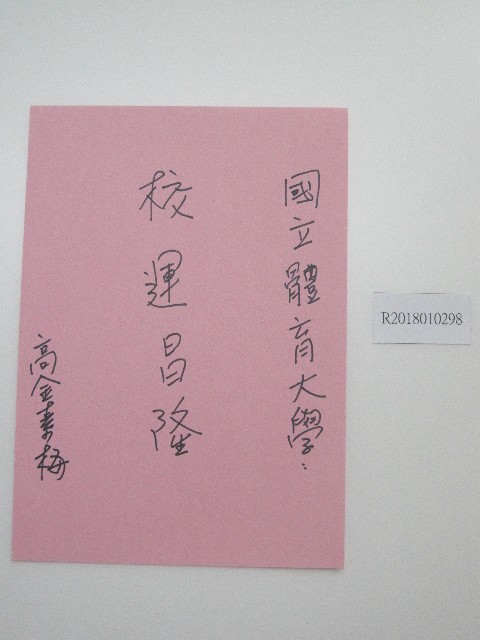 國立體育大學：
校運昌隆
高金素梅
R2018010298